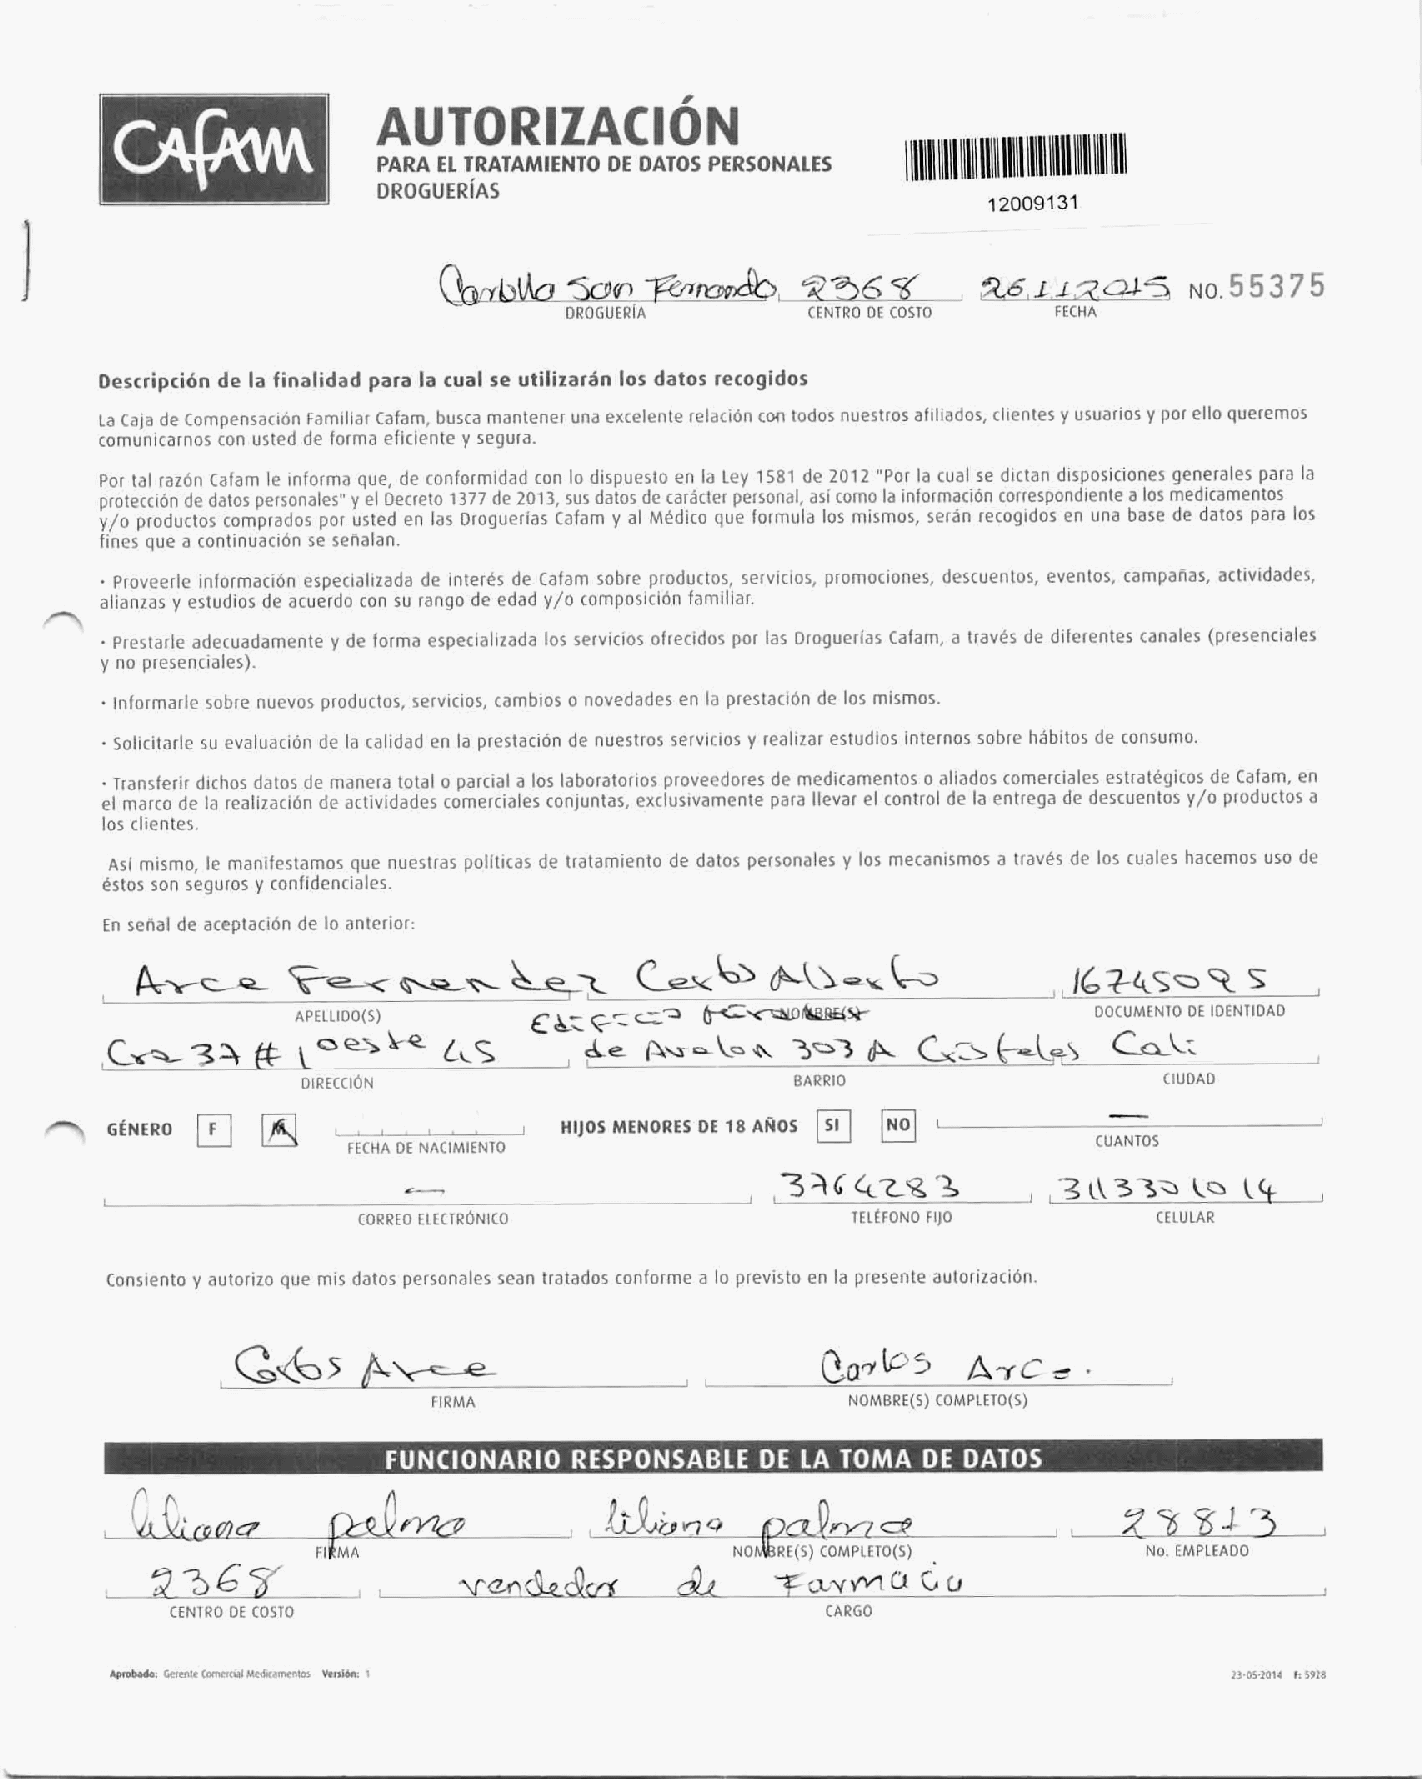 CAFAM
AUTORIZACIÓN
PARA EL TRATAMIENTO DE DATOS PERSONALES
DROGUERÍAS
12009131
San Fernando 2368 26112015 NO. 55375
DROGUERÍA CENTRO DE COSTO FECHA
Descripción de la finalidad para la cual se utilizarán los datos recogidos
La Caja de Compensación Familiar Cafam, busca mantener una excelente relación con todos nuestros afiliados, clientes y usuarios y por ello queremos
comunicarnos con usted de forma eficiente y segura.
Por tal razón Cafam le informa que, de conformidad con lo dispuesto en la Ley 1581 de 2012 "Por la cual se dictan disposiciones generales para la
protección de datos personales" y el Decreto 1377 de 2013, sus datos de carácter personal, así como la información correspondiente a los medicamentos
y/o productos comprados por usted en las Droguerías Cafam y al Médico que formula los mismos, serán recogidos en una base de datos para los
fines que a continuación se señalan.
· Proveerle información especializada de interés de Cafam sobre productos, servicios, promociones, descuentos, eventos, campañas, actividades,
alianzas y estudios de acuerdo con su rango de edad y/o composición familiar.
· Prestarle adecuadamente y de forma especializada los servicios ofrecidos por las Droguerías Cafam, a través de diferentes canales (presenciales
y no presenciales).
· Informarle sobre nuevos productos, servicios, cambios o novedades en la prestación de los mismos.
· Solicitarle su evaluación de la calidad en la prestación de nuestros servicios y realizar estudios internos sobre hábitos de consumo.
· Transferir dichos datos de manera total o parcial a los laboratorios proveedores de medicamentos o aliados comerciales estratégicos de Cafam, en
el marco de la realización de actividades comerciales conjuntas, exclusivamente para llevar el control de la entrega de descuentos y/o productos a
los clientes.
Así mismo, le manifestamos que nuestras políticas de tratamiento de datos personales y los mecanismos a través de los cuales hacemos uso de
éstos son seguros y confidenciales.
En señal de aceptación de lo anterior:
Arce Fernandez Carlos Alberto 16745095
APELLIDO(S) NOMBRE(S) DOCUMENTO DE IDENTIDAD
Edificio
Cra 37 # 1 oeste 45 de Avalon 303 A Cristales Cali
DIRECCIÓN BARRIO CIUDAD
GÉNERO F M HIJOS MENORES DE 18 AÑOS SI NO —
FECHA DE NACIMIENTO CUANTOS
— 3764283 3113301014
CORREO ELECTRÓNICO TELÉFONO FIJO CELULAR
Consiento y autorizo que mis datos personales sean tratados conforme a lo previsto en la presente autorización.
Carlos Arce Carlos Arce.
FIRMA NOMBRE(S) COMPLETO(S)
FUNCIONARIO RESPONSABLE DE LA TOMA DE DATOS
liliana palma liliana palma 28813
FIRMA NOMBRE(S) COMPLETO(S) No. EMPLEADO
2368 vendedor de Farmacia
CENTRO DE COSTO CARGO
Aprobado: Gerente Comercial Medicamentos Versión: 1 23-05-2014 f: 5928